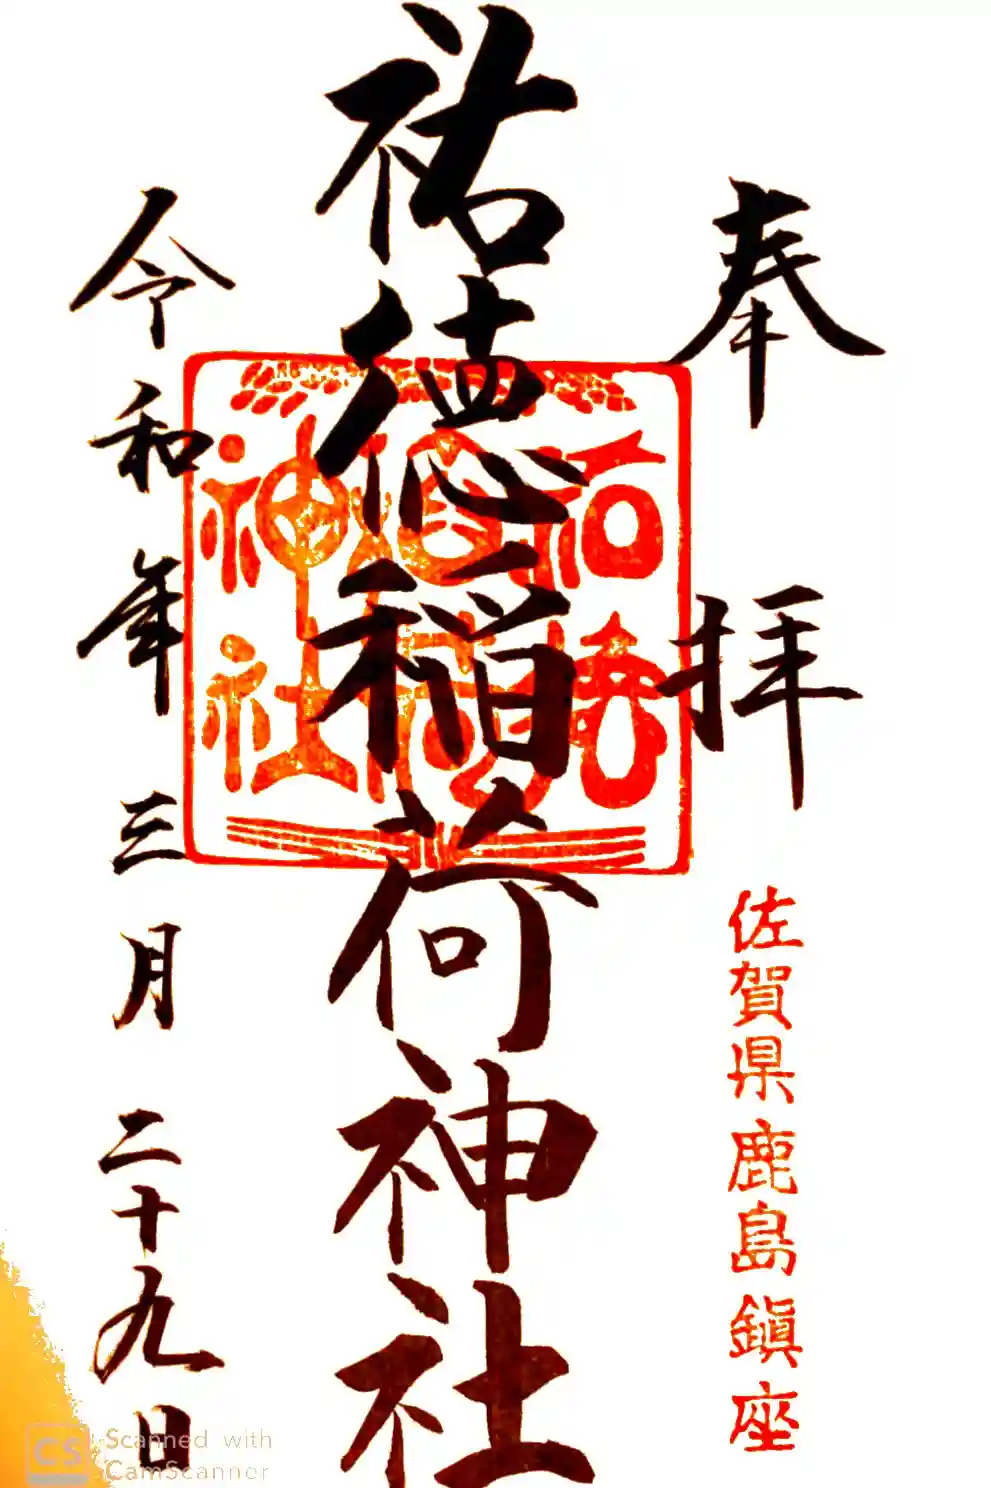 奉拝
佐賀県鹿島鎭座
祐徳稲荷神社
祐徳
稲荷
神社
令和年三月二十九日
CS Scanned with
CamScanner